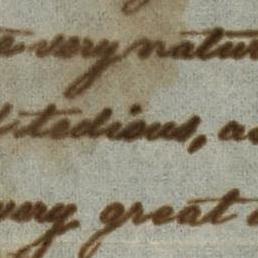 very natur
tedious, a
very great